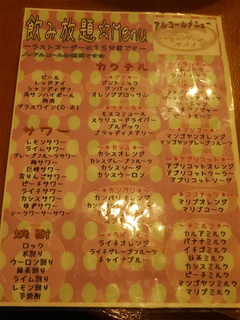 飲み放題☆Menu
アルコールメニュー
～ラストオーダーは15分前です～
カクテル
ビール
レッドアイ
シャンディガフ
角サンハイボール
梅酒
グラスワイン(白・赤)
サワー
レモンサワー
ライムサワー
グレープフルーツサワー
梅サワー
巨峰サワー
青りんごサワー
ピーチサワー
ライチサワー
カシスサワー
ゆずサワー
シークヮーサーサワー
焼酎
ロック
水割り
ウーロン割り
緑茶割り
ライム割り
レモン割り
芋焼酎
ジントニック
ジンバック
オレンジブロッサム
モスコミュール
スクリュードライバー
ブルドック
ブラッディメアリー
カシスオレンジ
カシスグレープフルーツ
カシスソーダ
カシスウーロン
ライチオレンジ
ライチグレープフルーツ
チャイナブルー
マンゴヤンオレンジ
マンゴヤングレープフルーツ
アプリコットオレンジ
アプリコットクーラー
アプリコットソーダ
マリブオレンジ
マリブコーク
カルアミルク
バナナミルク
イチゴミルク
抹茶ミルク
カシスミルク
ピーチミルク
マンゴヤンミルク
マリブミルク